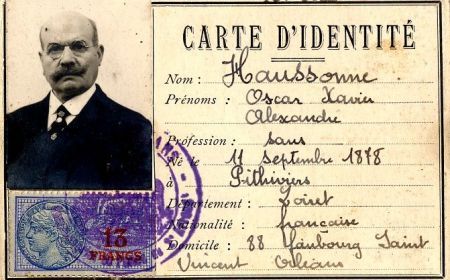 CARTE D'IDENTITÉ
Nom : Haussonne
Prénoms : Oscar Xavier
Alexandre
Profession : sans
Né le 17 septembre 1878
à Pithiviers
Département : Loiret
Nationalité : française
Domicile : 88 faubourg Saint
Vincent Orléans
13
FRANCS